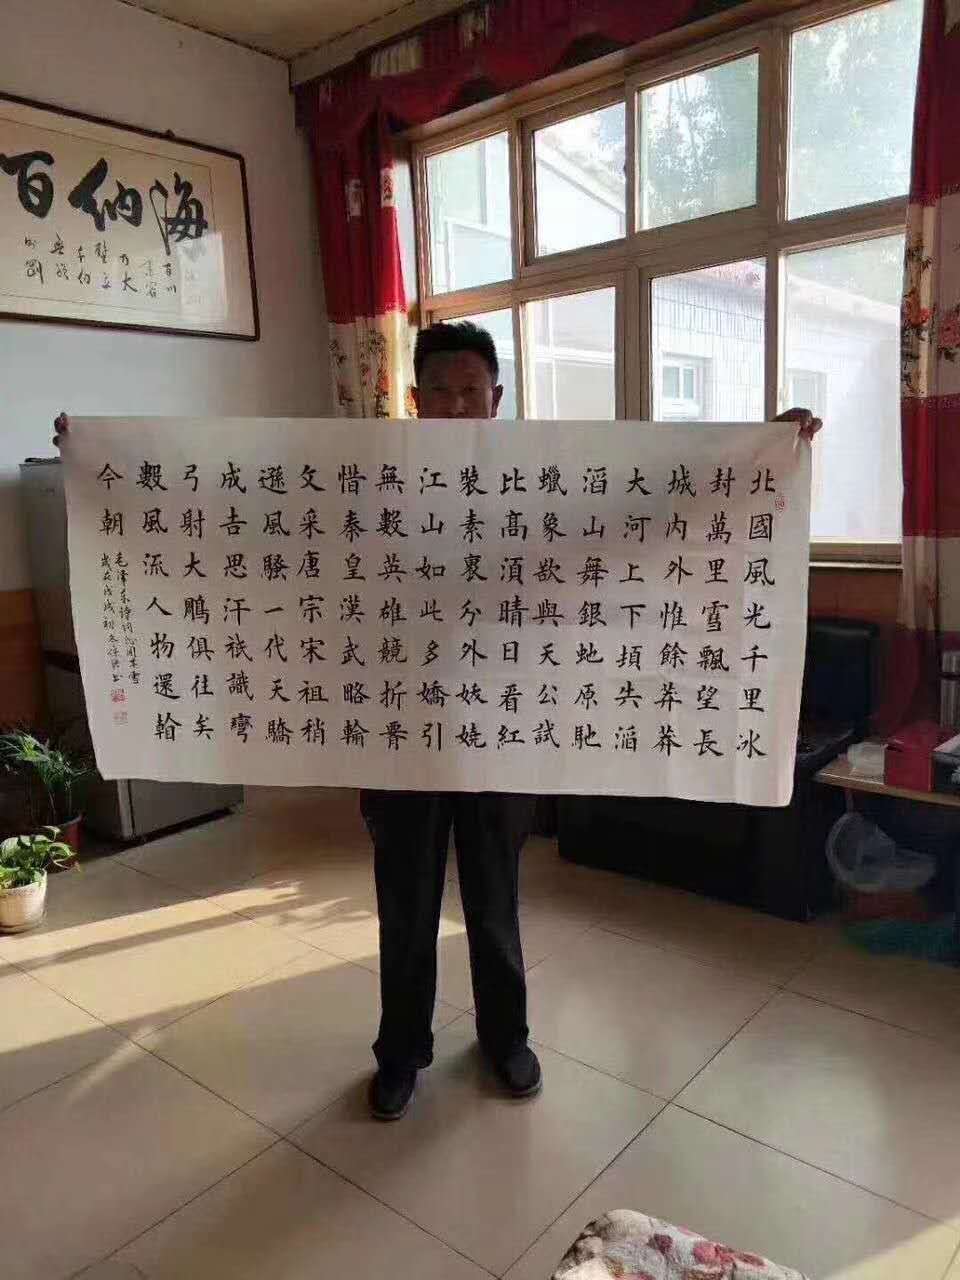 海納百
有容
乃大
壁立
千仞
無欲
則剛
北國風光千里冰
封萬里雪飄望長
城内外惟餘莽莽
大河上下頓失滔
滔山舞銀虵原馳
蠟象欲與天公試
比高須晴日看紅
裝素裹分外妖嬈
江山如此多嬌引
無數英雄競折腰
惜秦皇漢武略輸
文采唐宗宋祖稍
遜風騷一代天驕
成吉思汗祇識彎
弓射大鵰俱往矣
數風流人物還看
今朝
毛澤東詩詞沁園春雪
歲在戊戌初冬